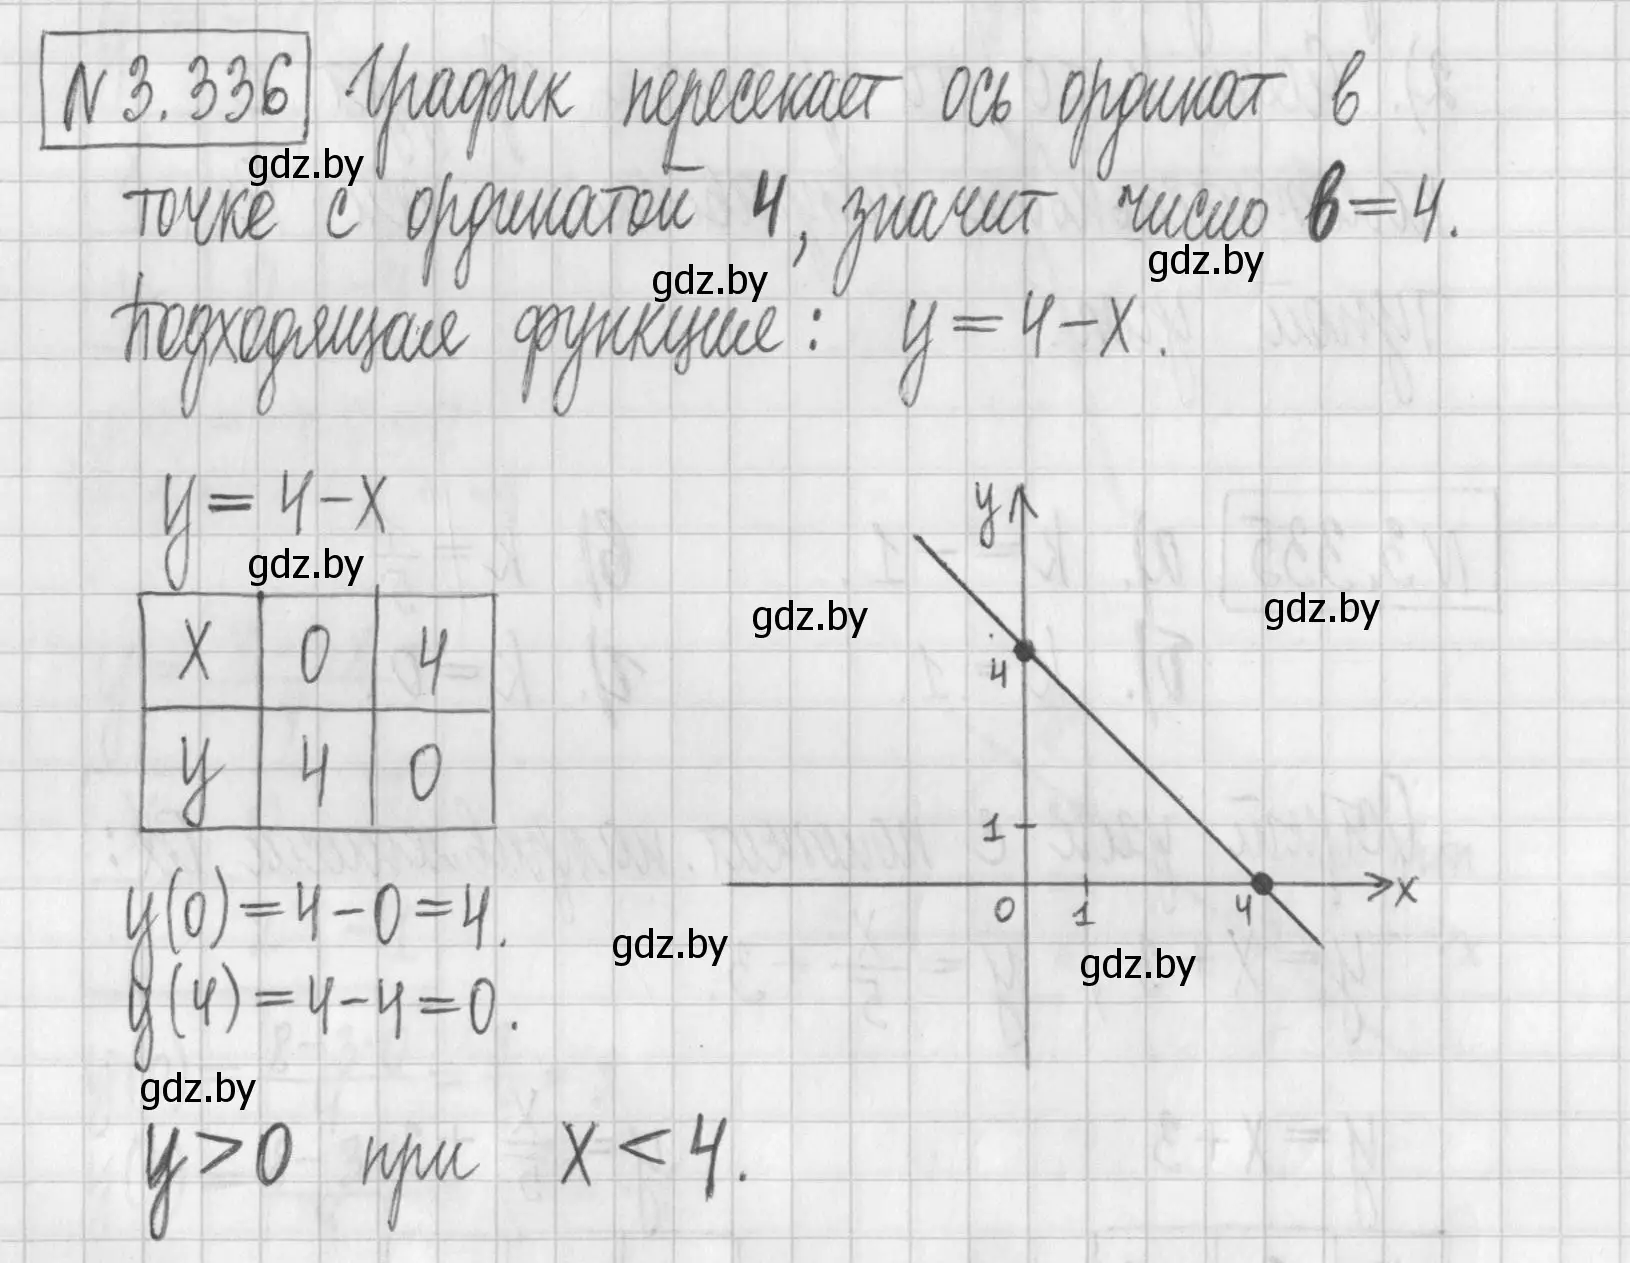 N 3.336 График пересекает ось ординат в
gdz.by
точке с ординатой 4, значит число b=4.
gdz.by
gdz.by
Подходящая функция: y=4-x.
y=4-x
gdz.by
x 0 4
y 4 0
y(0)=4-0=4.
y(4)=4-4=0.
gdz.by
y>0 при x<4.
y
gdz.by
gdz.by
4
1
0 1 4 x
gdz.by
gdz.by